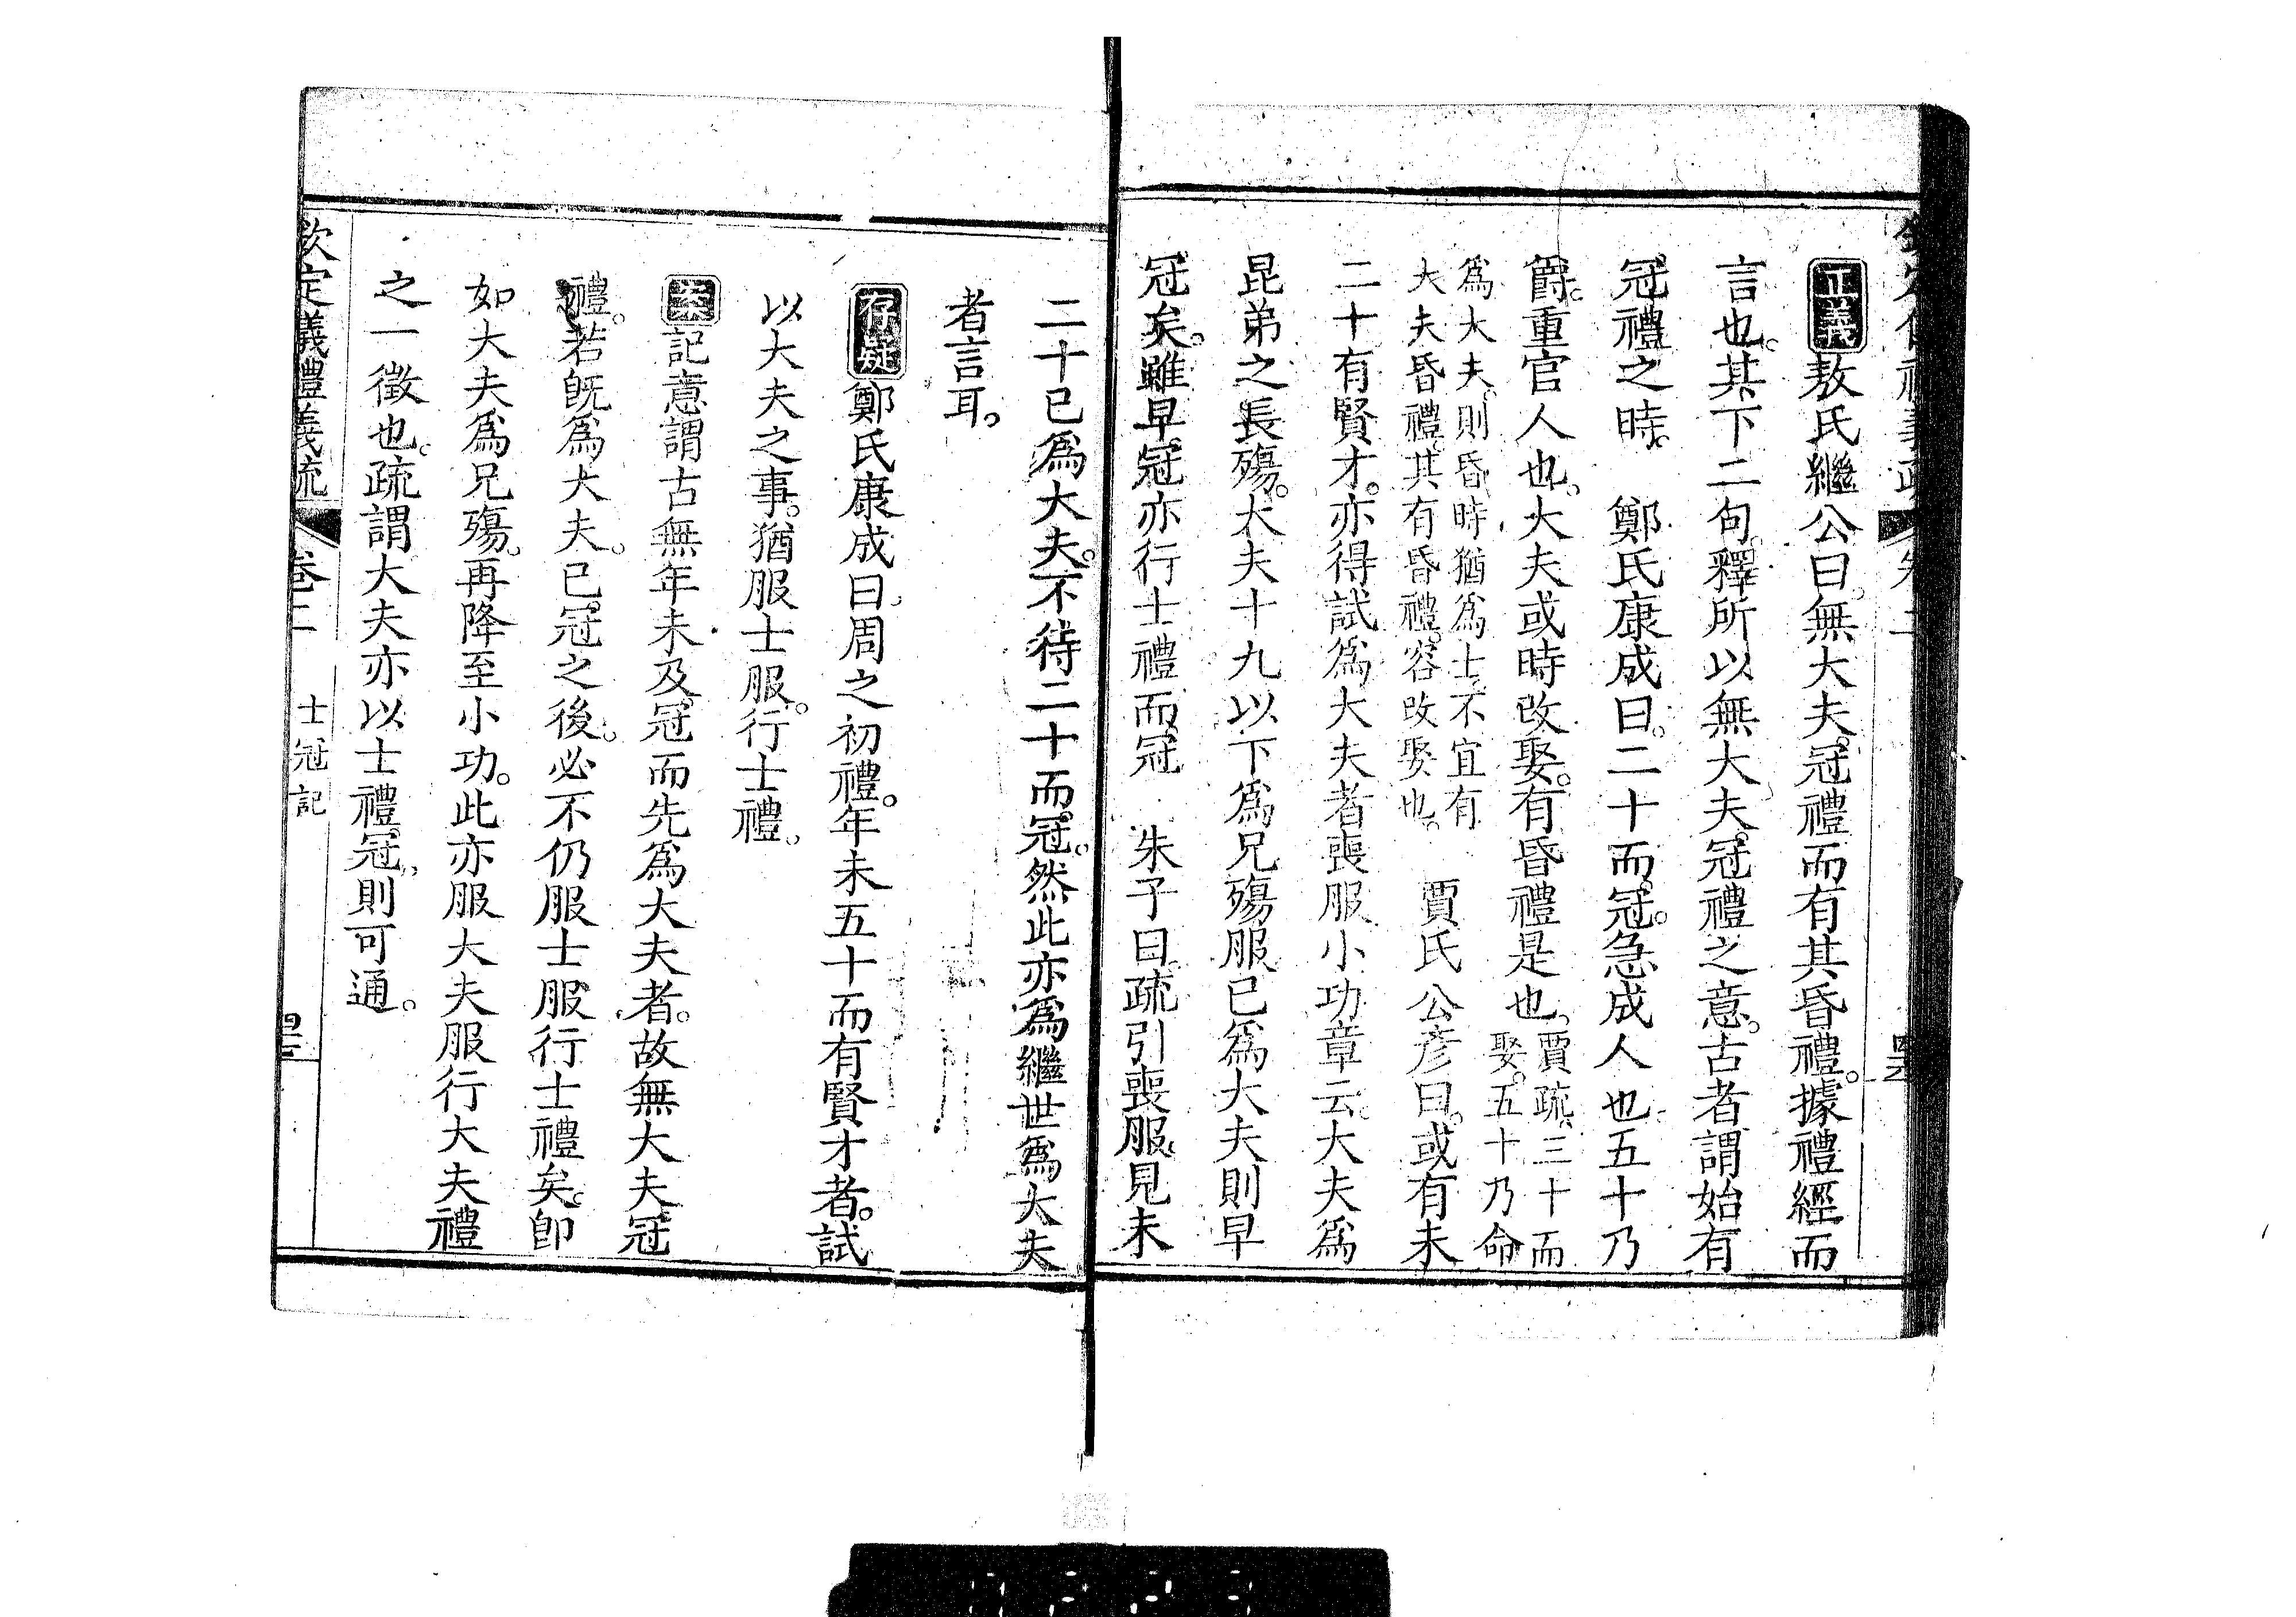 正義敖氏繼公曰無大夫冠禮而有其昏禮據禮經而
言也其下二句釋所以無大夫冠禮之意古者謂始有
冠禮之時　鄭氏康成曰二十而冠急成人也五十乃
爵重官人也大夫或時改娶有昏禮是也賈疏三十而
娶五十乃命
爲大夫則昏時猶爲士不宜有
大夫昏禮其有昏禮容改娶也　賈氏公彥曰或有未
二十有賢才亦得試爲大夫者喪服小功章云大夫爲
昆弟之長殤大夫十九以下爲兄殤服已爲大夫則早
冠矣雖早冠亦行士禮而冠　朱子曰疏引喪服見未
二十已爲大夫不待二十而冠然此亦爲繼世爲大夫
者言耳
存疑鄭氏康成曰周之初禮年未五十而有賢才者試
以大夫之事猶服士服行士禮
案記意謂古無年未及冠而先爲大夫者故無大夫冠
禮若既爲大夫已冠之後必不仍服士服行士禮矣即
如大夫爲兄殤再降至小功此亦服大夫服行大夫禮
之一徵也疏謂大夫亦以士禮冠則可通
欽定儀禮義疏　卷二　士冠記